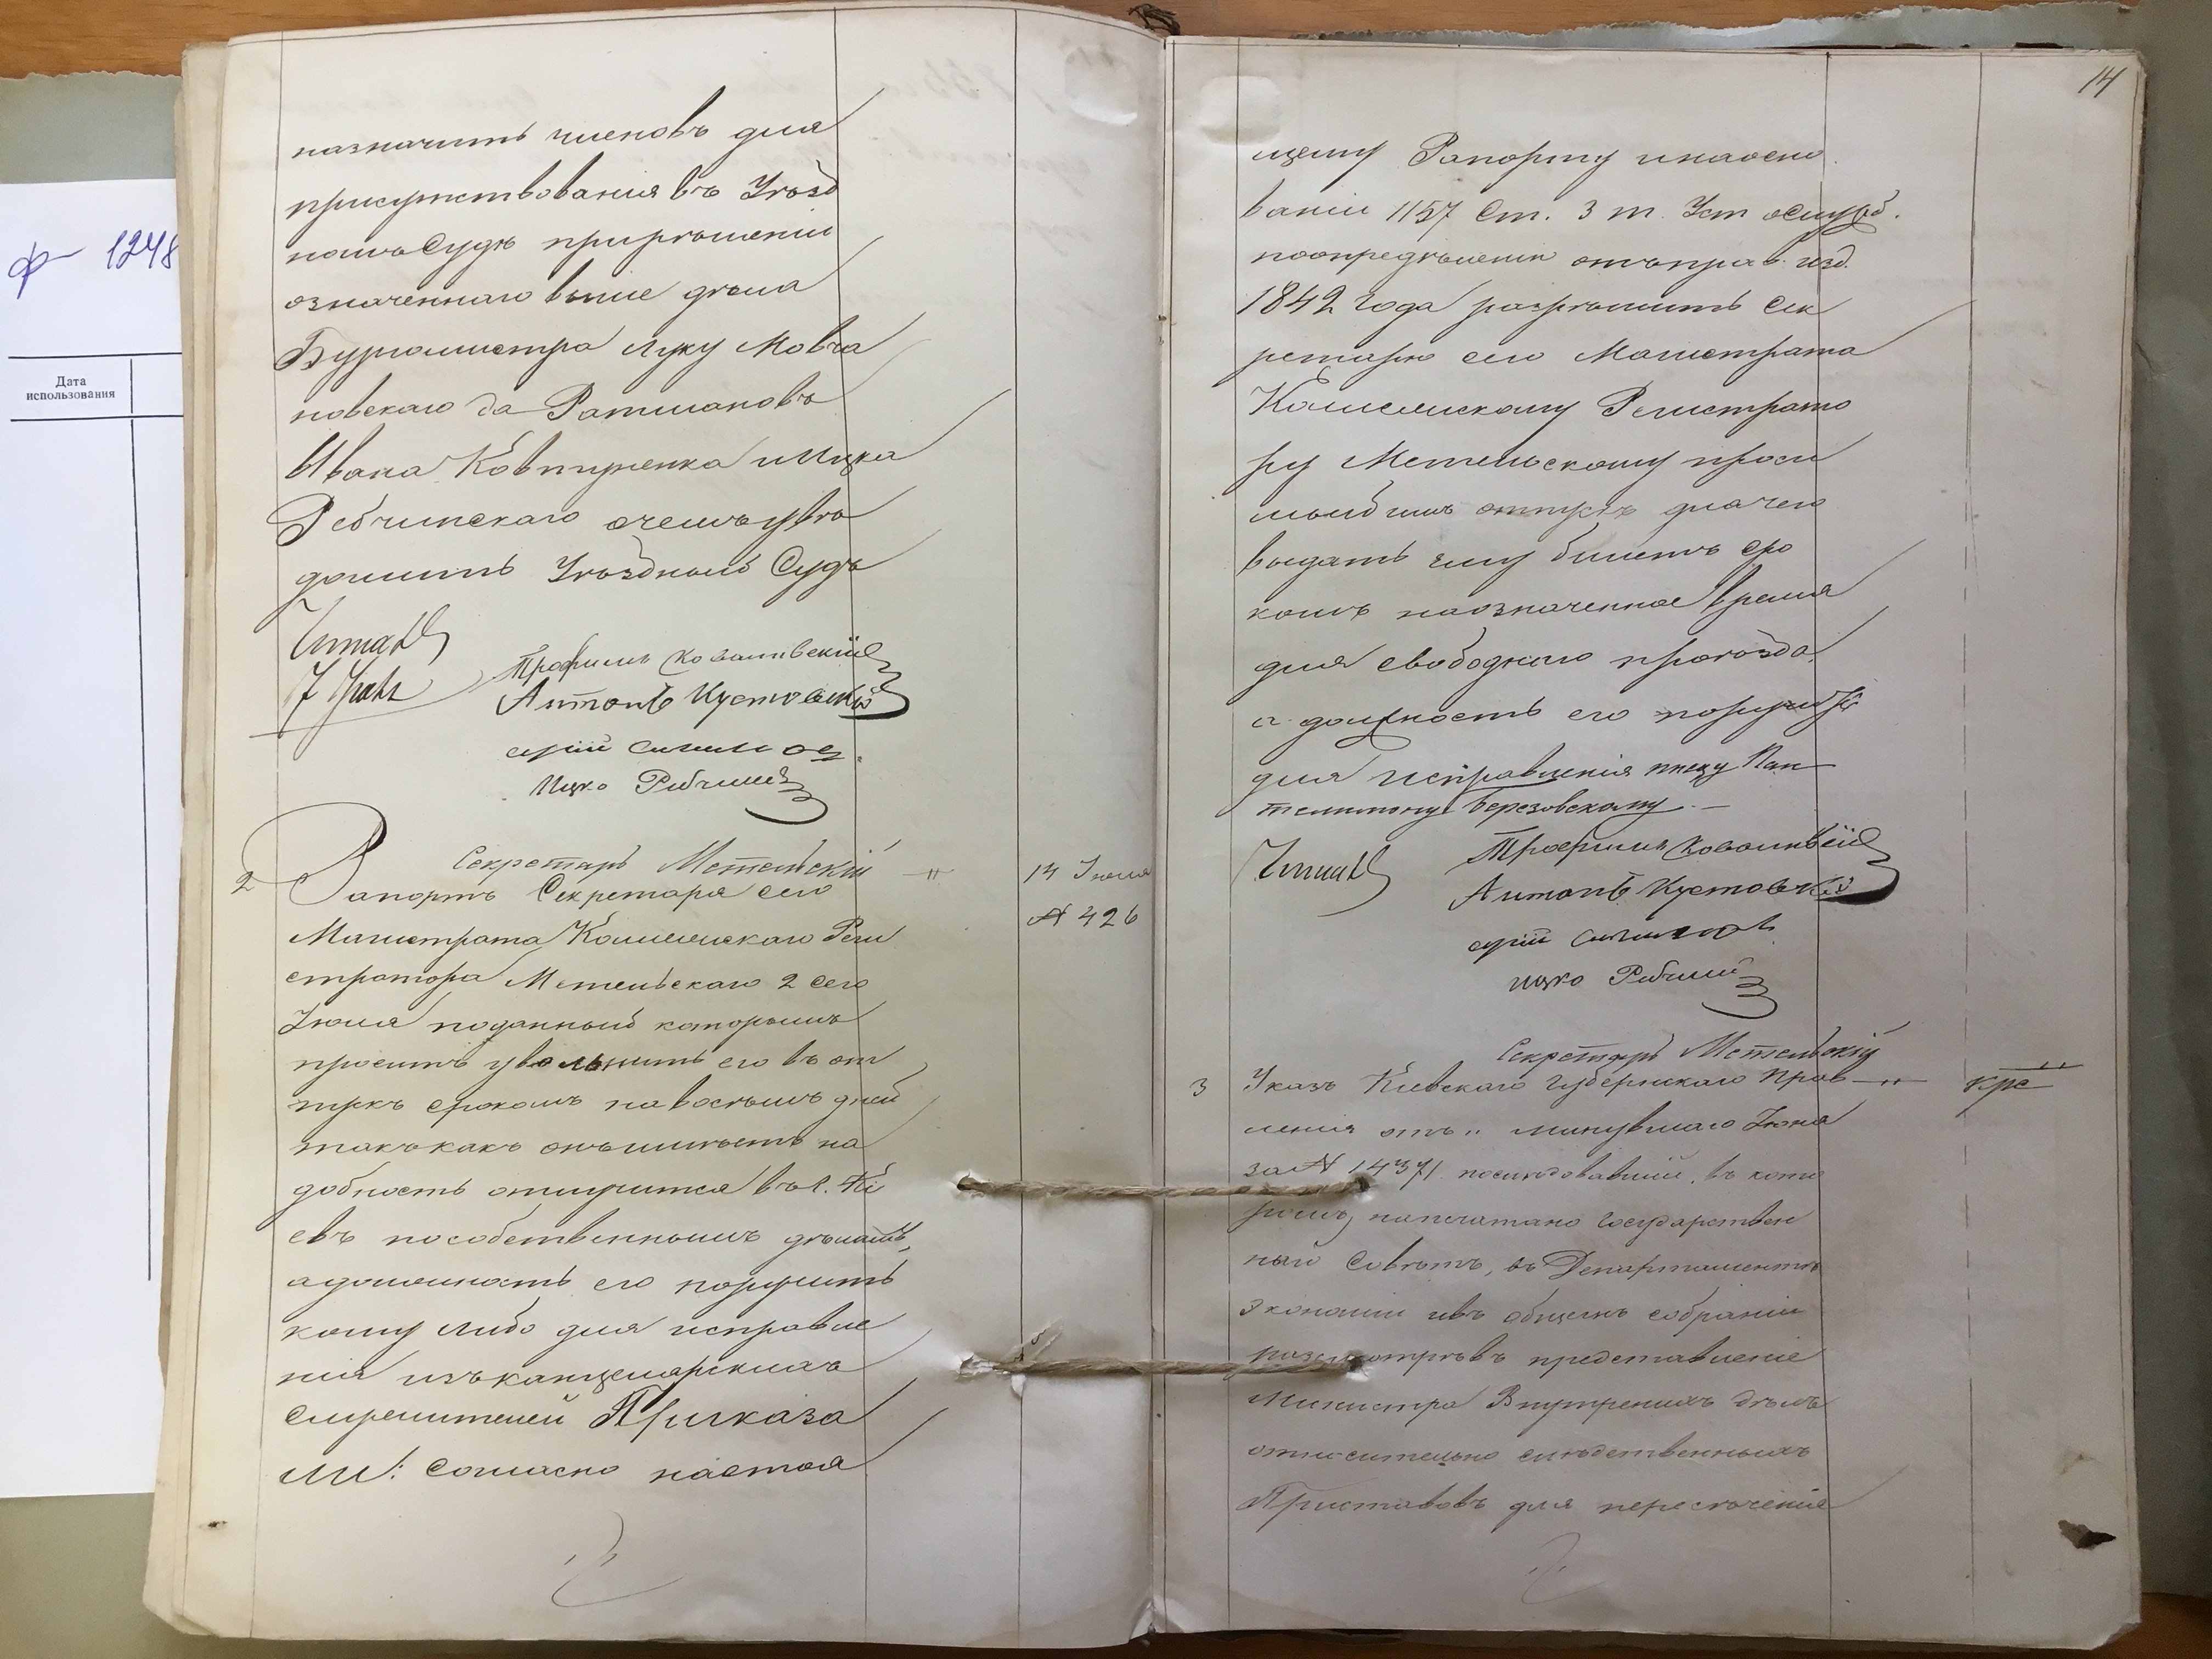 ф 1248
Дата
использования
назначить членовъ для
присутствованія въ Уѣзд
номъ Судѣ при рѣшеніи
означеннаго выше дѣла
Бургомистра Луку Мовча
новскаго да Ратмановъ
Ивана Ковтуненка и Ицка
Рабчинскаго о чемъ увѣ
домить Уѣздный Судъ
Читалъ
Трофимъ Коваливскій
Антонъ Кустовскій
Ицко Рабчинс
Секретарь Метельскій
2 Рапортъ Секретаря сего 14 Іюля
№ 426
Магистрата Коллежскаго Реги
стратора Метельскаго 2 сего
Іюля поданный которымъ
проситъ увольнить его въ от
пускъ срокомъ на восемь дней
такъ какъ онъ имѣетъ на
добность отлучится въ г. Кі
евъ по собственнымъ дѣламъ,
а должность его поручить
кому либо для исправле
нія изъ канцелярскихъ
служителей Приказа
ли: Согласно настоя
14
щему Рапорту и на осно
ваніи 1157 Ст. 3 т. Уст о Служб.
по опредѣленію отъ прав. изд.
1842 года разрѣшить Сек
ретарю сего Магистрата
Коллежскому Регистрато
ру Метельскому проси
мый имъ отпускъ для чего
выдать ему билетъ сро
комъ на означенное время
для свободнаго проѣзда,
а должность его поручить
для исправленія писцу Пан
телимону Березовскому. —
Читалъ
Трофимъ Коваливскій
Антонъ Кустовскій
Ицко Рабчинс
Секретарь Метельскій
3 Указъ Кіевскаго Губернскаго Прав — „ —
ленія отъ „ минувшаго Іюня
за № 14371 послѣдовавшій, въ кото
ромъ напечатано Государствен
ный Совѣтъ, въ Департаментѣ
Экономіи и въ общемъ собраніи
разсмотрѣвъ представленіе
Министра Внутренихъ дѣлъ
относительно слѣдственныхъ
Приставовъ для пересѣченія